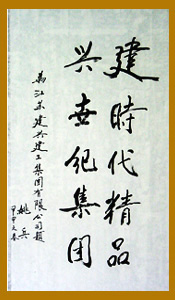 建時代精品
兴世纪集团
为江苏建兴建工集团有限公司题
姚兵
甲申之春